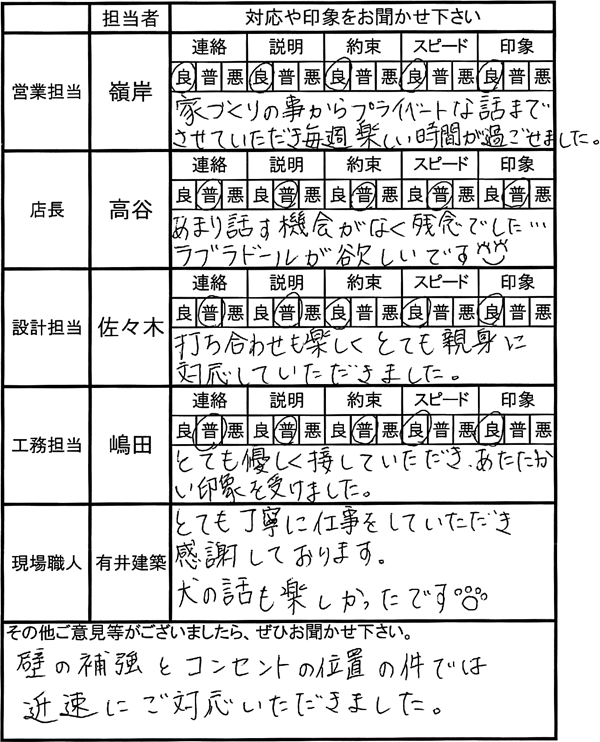 担当者 対応や印象をお聞かせ下さい
営業担当 嶺岸
連絡 説明 約束 スピード 印象
良 普 悪 良 普 悪 良 普 悪 良 普 悪 良 普 悪
家づくりの事からプライベートな話まで
させていただき毎週楽しい時間が過ごせました。
店長 高谷
連絡 説明 約束 スピード 印象
良 普 悪 良 普 悪 良 普 悪 良 普 悪 良 普 悪
あまり話す機会がなく残念でした…
ラブラドールが欲しいです
設計担当 佐々木
連絡 説明 約束 スピード 印象
良 普 悪 良 普 悪 良 普 悪 良 普 悪 良 普 悪
打ち合わせも楽しくとても親身に
対応していただきました。
工務担当 嶋田
連絡 説明 約束 スピード 印象
良 普 悪 良 普 悪 良 普 悪 良 普 悪 良 普 悪
とても優しく接していただき、あたたか
い印象を受けました。
現場職人 有井建築
とても丁寧に仕事をしていただき
感謝しております。
犬の話も楽しかったです
その他ご意見等がございましたら、ぜひお聞かせ下さい。
壁の補強とコンセントの位置の件では
迅速にご対応いただきました。